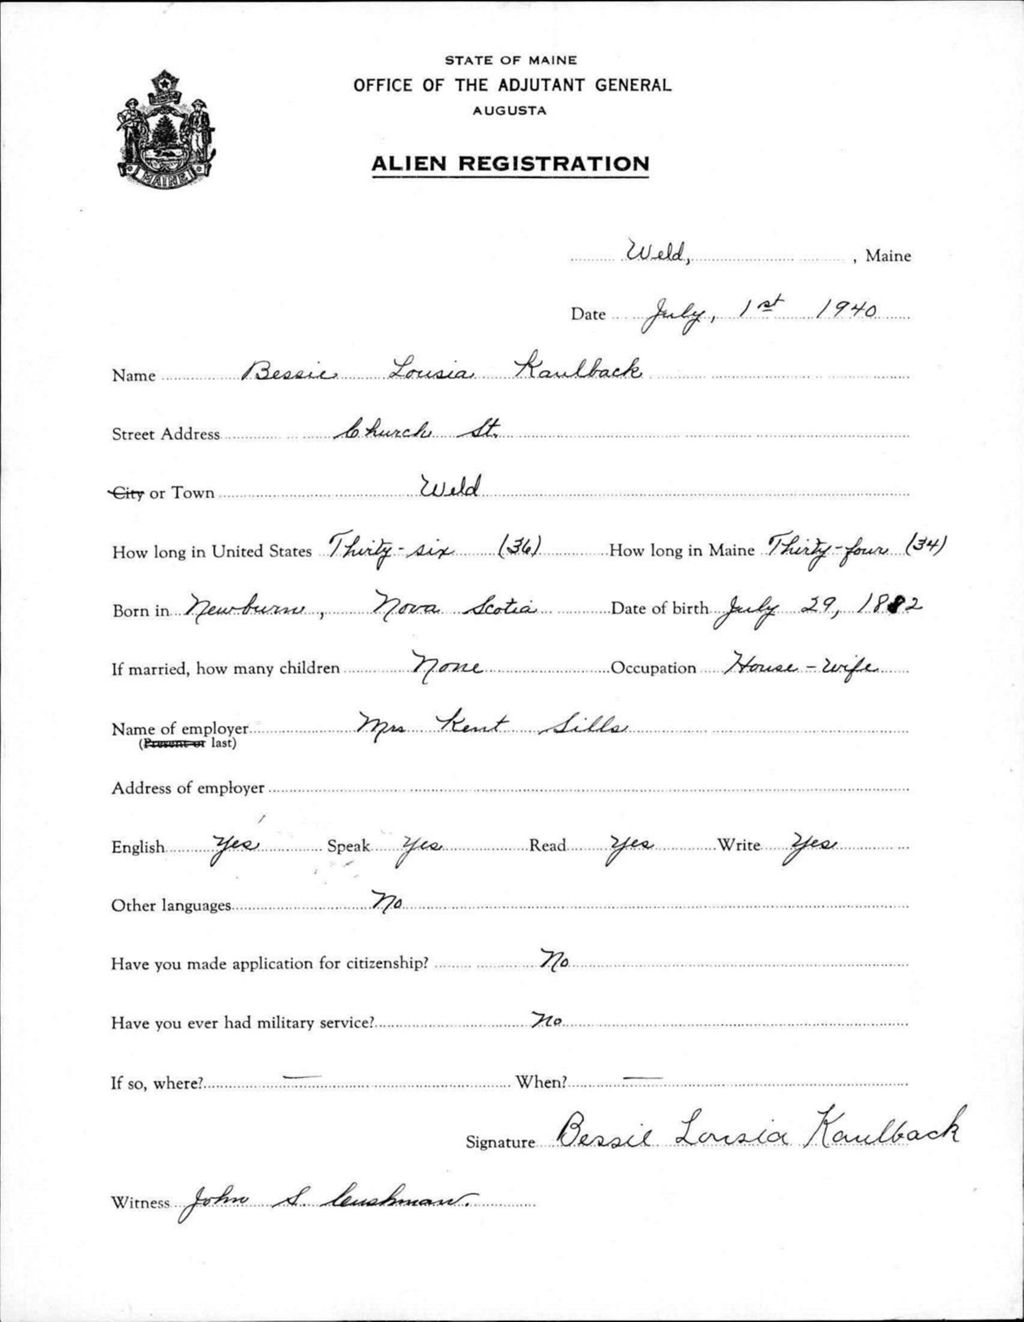 STATE OF MAINE
OFFICE OF THE ADJUTANT GENERAL
AUGUSTA
ALIEN REGISTRATION
MAINE
Weld, , Maine
Date July, 1st 1940
Name Bessie Lousia Kaulback
Street Address Church St.
City or Town Weld
How long in United States Thirty-six (36) How long in Maine Thirty-four (34)
Born in Newburn, Nova Scotia Date of birth July 29, 1882
If married, how many children None Occupation House-wife
Name of employer Mrs Kent Sills
(Present or last)
Address of employer
English Yes Speak Yes Read Yes Write Yes
Other languages No
Have you made application for citizenship? No
Have you ever had military service? No
If so, where? — When? —
Signature Bessie Lousia Kaulback
Witness John S. Cushman.